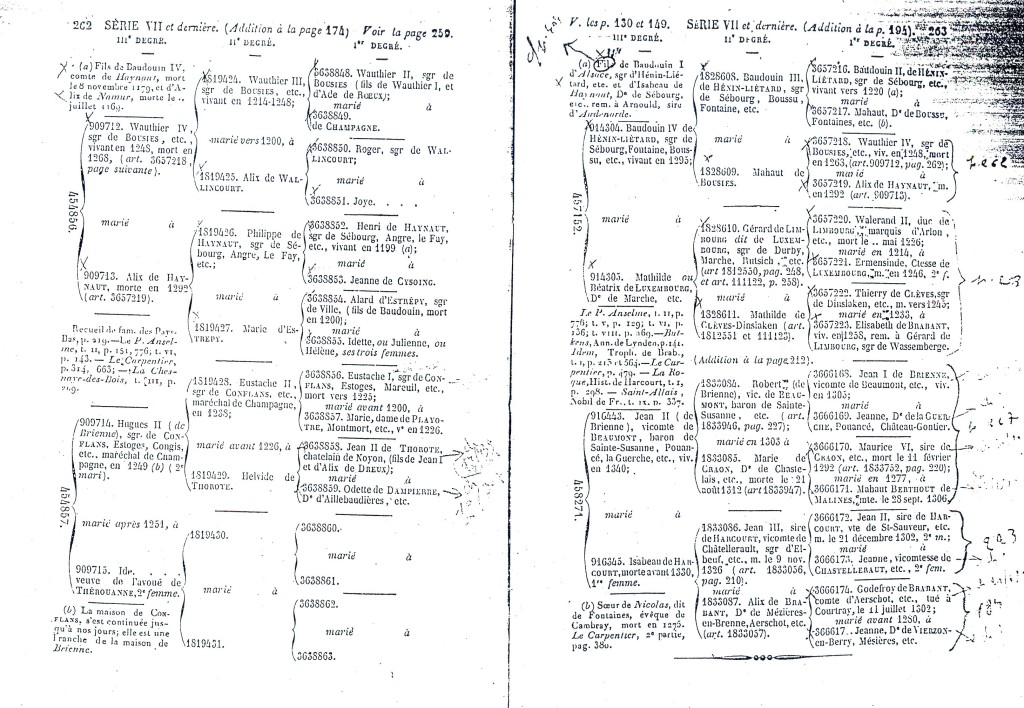 262 SÉRIE VII et dernière. (Addition à la page 174) Voir la page 259.
IIIe DEGRÉ. IIe DEGRÉ. Ier DEGRÉ.
(a) Fils de Baudouin IV,
comte de Haynaut, mort
le 8 novembre 1179, et d'A-
lix de Namur, morte le ..
juillet 1169.
909712. Wauthier IV,
sgr de BOUSIES, etc.,
vivant en 1248, mort en
1268, (art. 3657218,
page suivante).
454856.
marié à
909713. Alix de HAY-
NAUT, morte en 1292
(art. 3657219).
Recueil de fam. des Pays-
Bas, p. 219.—Le P. Ansel-
me, t. II, p. 151, 776; t. VI,
p. 143. — Le Carpentier,
p. 314, 663; — La Ches-
naye-des-Bois, t. III, p.
219.
909714. Hugues II (de
Brienne), sgr. de CON-
FLANS, Estoges, Congis,
etc., maréchal de Cham-
pagne, en 1249 (b) (2e
mari).
454857.
marié après 1251, à
909715. Ide. . . .
veuve de l'avoué de
THÉROUANNE, 2e femme.
(b) La maison de CON-
FLANS, s'est continuée jus-
qu'à nos jours; elle est une
branche de la maison de
Brienne.
1819424. Wauthier III,
sgr de BOUSIES, etc.,
vivant en 1214-1248;
marié vers 1200, à
1819425. Alix de WAL-
LINCOURT.
1819426. Philippe de
HAYNAUT, sgr de Sé-
bourg, Angre, Le Fay,
etc.;
marié à
1819427. Marie d'Es-
TREPY.
1819428. Eustache II,
sgr de CONFLANS, etc.,
maréchal de Champagne,
en 1238;
marié avant 1226, à
1819429. Helvide de
THOROTE.
1819430.
marié à
1819431.
3638848. Wauthier II, sgr
de BOUSIES (fils de Wauthier I, et
d'Ade de RŒUX);
marié à
3638849.
de CHAMPAGNE.
3638850. Roger, sgr de WAL-
LINCOURT;
marié à
3638851. Joye. . . . .
3638852. Henri de HAYNAUT,
sgr de Sébourg, Angre, le Fay,
etc., vivant en 1199 (a);
marié à
3638853. Jeanne de CYSOING.
3638854. Alard d'ESTRÉPY, sgr
de Ville, (fils de Baudouin, mort
en 1200);
marié à
3638855. Idette, ou Julienne, ou
Hélène, ses trois femmes.
3638856. Eustache I, sgr de CON-
FLANS, Estoges, Mareuil, etc.,
mort vers 1225;
marié avant 1200, à
3638857. Marie, dame de PLAYO-
TRE, Montmort, etc., ve en 1226.
3638858. Jean II de THOROTE,
chatelain de Noyon, (fils de Jean I
et d'Alix de DREUX);
marié à
3638859. Odette de DAMPIERRE,
De d'Aillebaudières, etc.
3638860.
marié à
3638861.
3638862.
marié à
3638863.
V. les p. 130 et 149. SÉRIE VII et dernière. (Addition à la p. 194). 263
IIIe DEGRÉ. IIe DEGRÉ. Ier DEGRÉ.
(a) Fils de Baudouin I
d'Alsace, sgr d'Hénin-Lié-
tard, etc. et d'Isabeau de
Haynaut, De de Sébourg,
etc., rem. à Arnould, sire
d'Audenarde.
914304. Baudouin IV de
HÉNIN-LIÉTARD, sgr de
Sébourg, Fontaine, Bous-
su, etc., vivant en 1295;
457152.
marié à
914305. Mathilde ou
Béatrix de LUXEMBOURG,
De de Marche, etc.
Le P. Anselme, t. II, p.
776; t. V, p. 129; t. VI, p.
136; t. VIII, p. 269.—But-
kens, Ann. de Lynden, p. 141.
Idem, Troph. de Brab.,
t. I, p. 215 et 564.—Le Car-
pentier, p. 479. — La Ro-
que, Hist. de Harcourt, t. I,
p. 298. — Saint-Allais,
Nobil de Fr., t. IX, p. 337.
916443. Jean II (de
Brienne), vicomte de
BEAUMONT, baron de
Sainte-Susanne, Pouan-
cé, la Guerche, etc., viv.
en 1340;
458271.
marié à
916345. Isabeau de HAR-
COURT, morte avant 1330,
1re femme.
(b) Sœur de Nicolas, dit
de Fontaines, évêque de
Cambray, mort en 1273.
Le Carpentier, 2e partie,
pag. 380.
1828608. Baudouin III,
de HÉNIN-LIÉTARD, sgr de
Sébourg, Boussu,
Fontaine, etc.
marié à
1828609. Mahaut de
BOUSIES.
1828610. Gérard de LIM-
BOURG dit de LUXEM-
BOURG, sgr de Durby,
Marche, Butsich, etc.
(art 1812550, pag. 248,
et art. 111122, p. 258).
marié à
1828611. Mathilde de
CLÈVES-DINSLAKEN (art.
1812551 et 111123).
(Addition à la page 212).
1833084. Robert (de
Brienne), vic. de BEAU-
MONT, baron de Sainte-
Susanne, etc. (art.
1833946, pag. 227);
marié en 1303 à
1833085. Marie de
CRAON, De de Chaste-
lais, etc., morte le 21
août 1312 (art 1833947).
1833086. Jean III, sire
de HARCOURT, vicomte de
Châtellerault, sgr d'El-
beuf, etc., m. le 9 nov.
1326 (art. 1833056,
pag. 210).
marié à
1833087. Alix de BRA-
BANT, De de Mézières-
en-Brenne, Aerschot, etc.
(art. 1833057).
3657216. Baudouin II, de HÉNIN-
LIÉTARD, sgr de Fontaine, etc.,
vivant vers 1220 (a);
marié à
3657217. Mahaut, De de Bousse,
Fontaines, etc. (b).
3657218. Wauthier IV, sgr de
BOUSIES, etc., viv. en 1248, mort
en 1263, (art. 909712, pag. 262);
marié à
3657219. Alix de HAYNAUT, m.
en 1292 (art. 909713).
3657220. Walerand II, duc de
LIMBOURG, marquis d'Arlon,
etc., mort le .. mai 1226;
marié en 1214, à
3657221. Ermensinde, Ctesse de
LUXEMBOURG, m. en 1246, 2e f.
3657222. Thierry de CLÈVES, sgr
de Dinslaken, etc., m. vers 1245;
marié en 1233, à
3657223. Elisabeth de BRABANT,
viv. en 1258, rem. à Gérard de
LIMBOURG, sgr de Wassemberge.
3666168. Jean I de BRIENNE,
vicomte de Beaumont, etc., viv.
en 1305;
marié à
3666169. Jeanne, De de la GUER-
CHE, Pouancé, Château-Gontier.
3666170. Maurice VI, sire de
CRAON, etc., mort le 11 février
1292 (art. 1833752, pag. 220);
marié en 1277, à
3666171. Mahaut BERTHOUT de
MALINES, mte. le 28 sept. 1306.
3666172. Jean II, sire de HAR-
COURT, vte de St-Sauveur, etc.
m. le 21 décembre 1302, 2e m.;
marié à
3666173. Jeanne, vicomtesse de
CHASTELLERAUT, etc., 2e fem.
3666174. Godefroy de BRABANT,
comte d'Aerschot, etc., tué à
Courtray, le 11 juillet 1302;
marié avant 1280, à
366617.. Jeanne, De de VIERZON-
en-Berry, Mésières, etc.